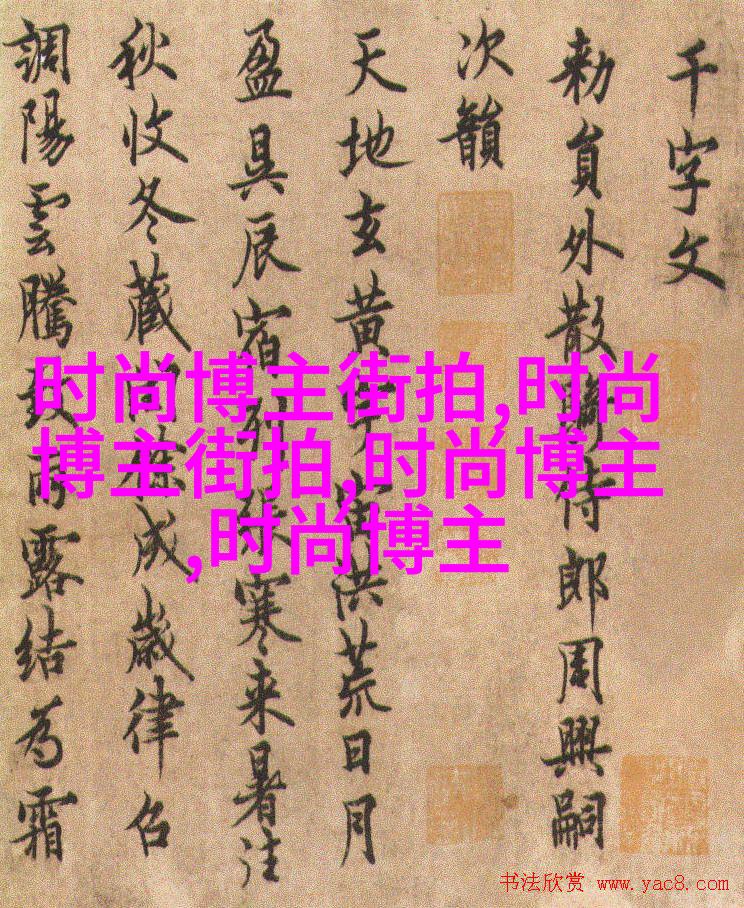 千字文
勅員外散騎侍郎周興嗣
次韻
天地玄黃宇宙洪荒日月
盈昃辰宿列張寒来暑往
秋收冬藏閏餘成歲律召
調陽雲騰致雨露結為霜
时尚博主街拍,时尚
博主街拍,时尚博主
,时尚博主
书法欣赏 www.yac8.com